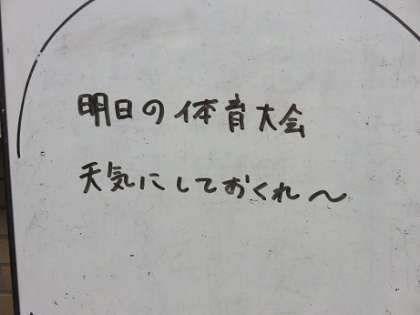 明日の体育大会
天気にしておくれ～